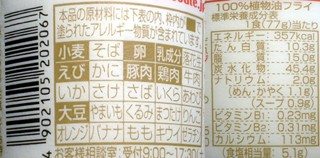 本品の原材料には下表の内、枠内が
塗られたアレルギー物質が含まれています。
小麦 そば 卵 乳成分 落花生
えび かに 豚肉 鶏肉 牛肉
いか さけ さば いくら あわび
大豆 やまいも くるみ まつたけ りんご
オレンジ バナナ もも キウイ ゼラチン
お客様 受付9:00〜17:30
4902105202067
100%植物油フライ
標準栄養成分表
1食(77g)当たり
エネルギー 357kcal
たん白質 10.3g
脂質 15.0g
炭水化物 45.4g
ナトリウム 2.0g
(めん・かやく 1.1g)
(スープ 0.9g)
ビタミンB1 0.23mg
ビタミンB2 0.31mg
カルシウム 113mg
食塩相当量 5.1g